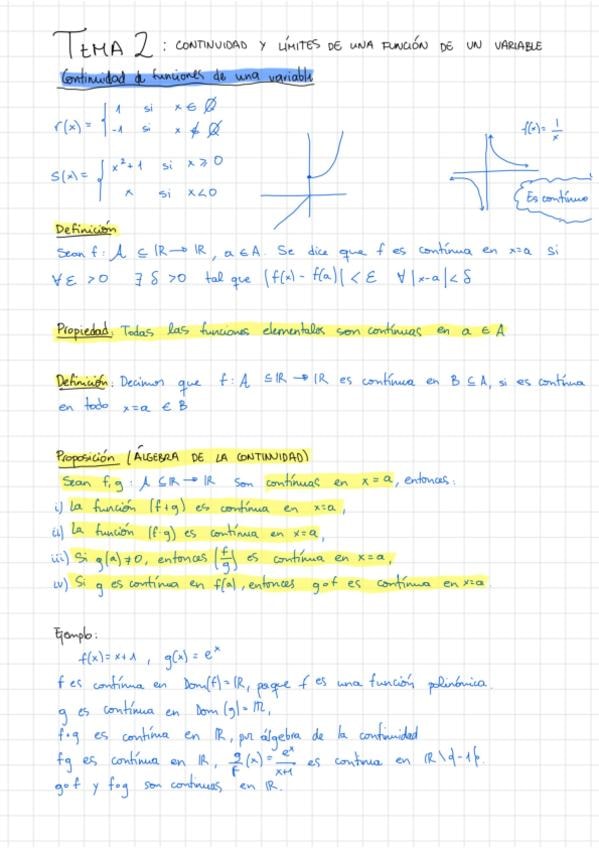 TEMA 2: CONTINUIDAD Y LÍMITES DE UNA FUNCIÓN DE UN VARIABLE
Continuidad de funciones de una variable
r(x) = { 1 si x ∈ ℚ
-1 si x ∉ ℚ
f(x) = 1/x
s(x) = { x²+1 si x ⩾ 0
x si x<0
Es contínuo
Definición
Sean f: A ⊆ ℝ → ℝ, a ∈ A. Se dice que f es contínua en x=a si
∀ε >0 ∃ δ >0 tal que |f(x) - f(a)| < ε ∀ |x-a| < δ
Propiedad: Todas las funciones elementales son contínuas en a ∈ A
Definición: Decimos que f: A ⊆ ℝ → ℝ es contínua en B ⊆ A, si es contínua
en todo x=a ∈ B
Proposición (ÁLGEBRA DE LA CONTINUIDAD)
Sean f,g : A ⊆ ℝ → ℝ son contínuas en x = a, entonces:
i) La función (f+g) es contínua en x=a,
ii) La función (f·g) es contínua en x=a,
iii) Si g(a)≠0, entonces (f/g) es contínua en x=a,
iv) Si g es contínua en f(a), entonces g∘f es contínua en x=a.
Ejemplo:
f(x) = x+1, g(x) = eˣ
f es contínua en Dom(f) = ℝ, porque f es una función polinómica.
g es contínua en Dom(g) = ℝ,
f+g es contínua en ℝ, por álgebra de la continuidad
fg es contínua en ℝ, g/f (x) = eˣ/x+1 es contínua en ℝ\{-1}.
g∘f y f∘g son continuas en ℝ.